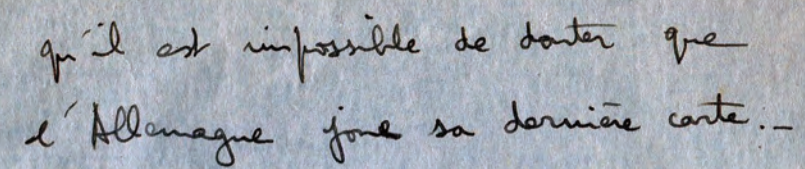 qu'il est impossible de douter que
l'Allemagne joue sa dernière carte._